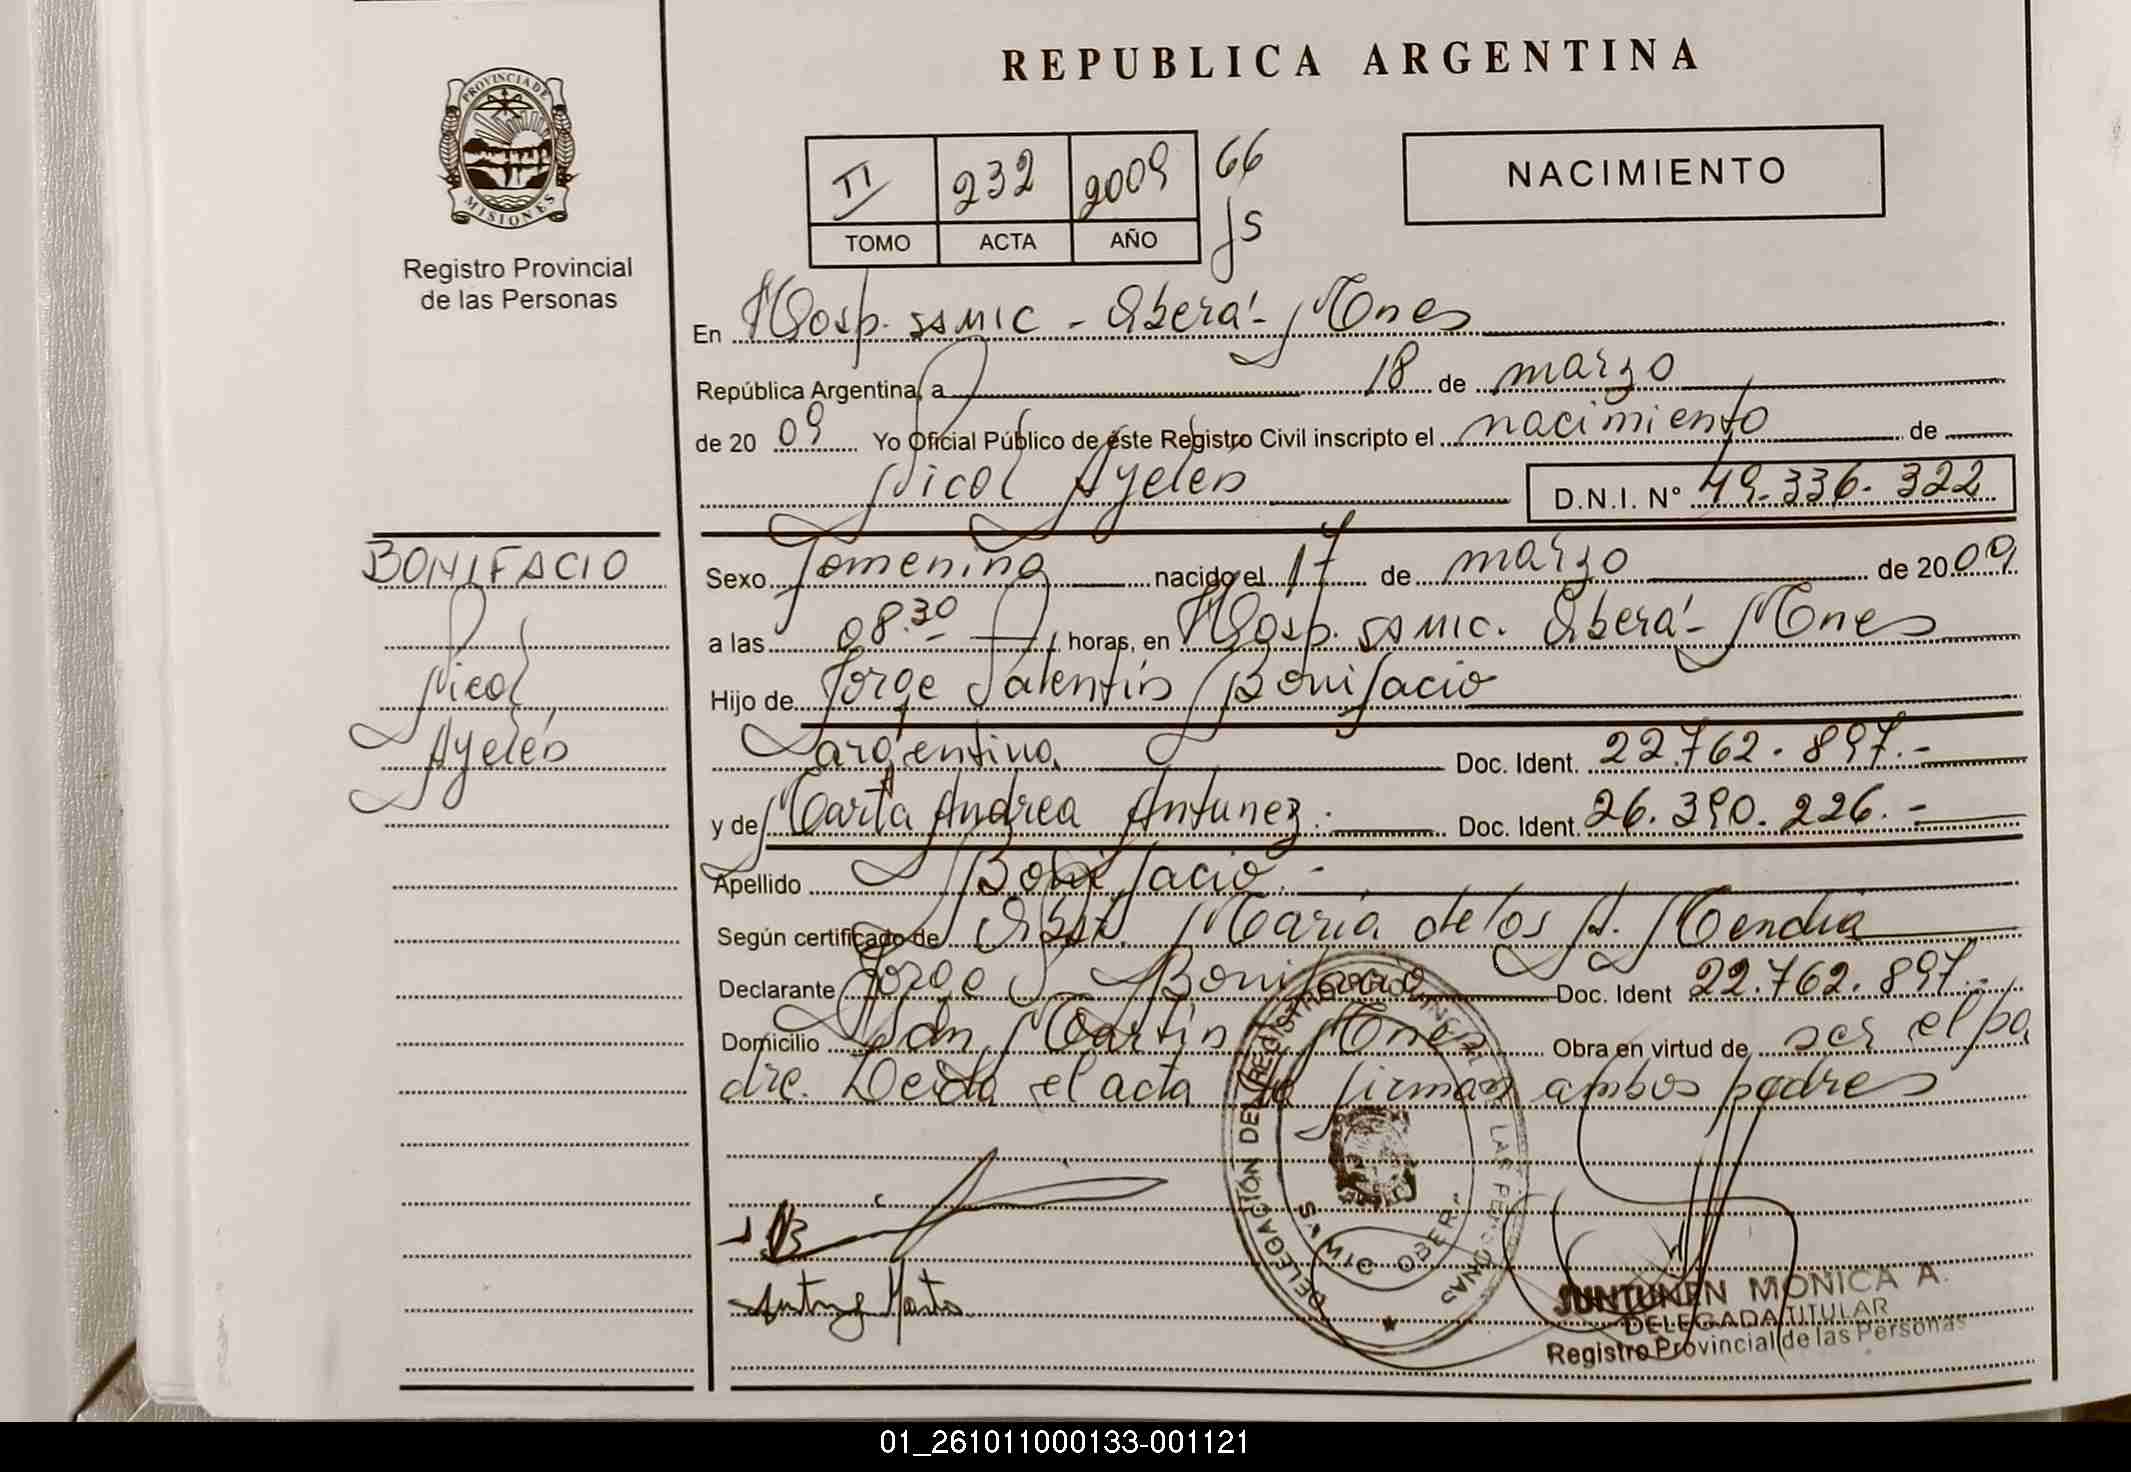 PROVINCIA DE
MISIONES
Registro Provincial
de las Personas
REPUBLICA ARGENTINA
NACIMIENTO
II 232 2009 66
TOMO ACTA AÑO
En Hosp. SAMIC - Oberá - Mnes
República Argentina, a 18 de marzo
de 20 09 Yo Oficial Público de éste Registro Civil inscripto el nacimiento de
Nicol Ayelén D.N.I. N° 49.336.322
BONIFACIO
Nicol
Ayelén
Sexo femenino nacido el 17 de marzo de 2009
a las 08.30 horas, en Hosp. SAMIC. Oberá - Mnes
Hijo de Jorge Valentín Bonifacio
argentino Doc. Ident. 22.762.897.-
y de Marta Andrea Antunez.- Doc. Ident. 26.390.226.-
Apellido Bonifacio.-
Según certificado de Obst. María de los A.
Declarante Jorge V. Bonifacio Doc. Ident 22.762.897.-
Domicilio San Martín Mnes Obra en virtud de ser el pa
dre. Leida el acta la firman ambos padres
DELEGACIÓN DEL REGISTRO PROVINCIAL DE LAS PERSONAS
SAMIC OBERA
Antunez Marta
JUNTUNEN MONICA A.
DELEGADA TITULAR
Registro Provincial de las Personas
01_261011000133-001121